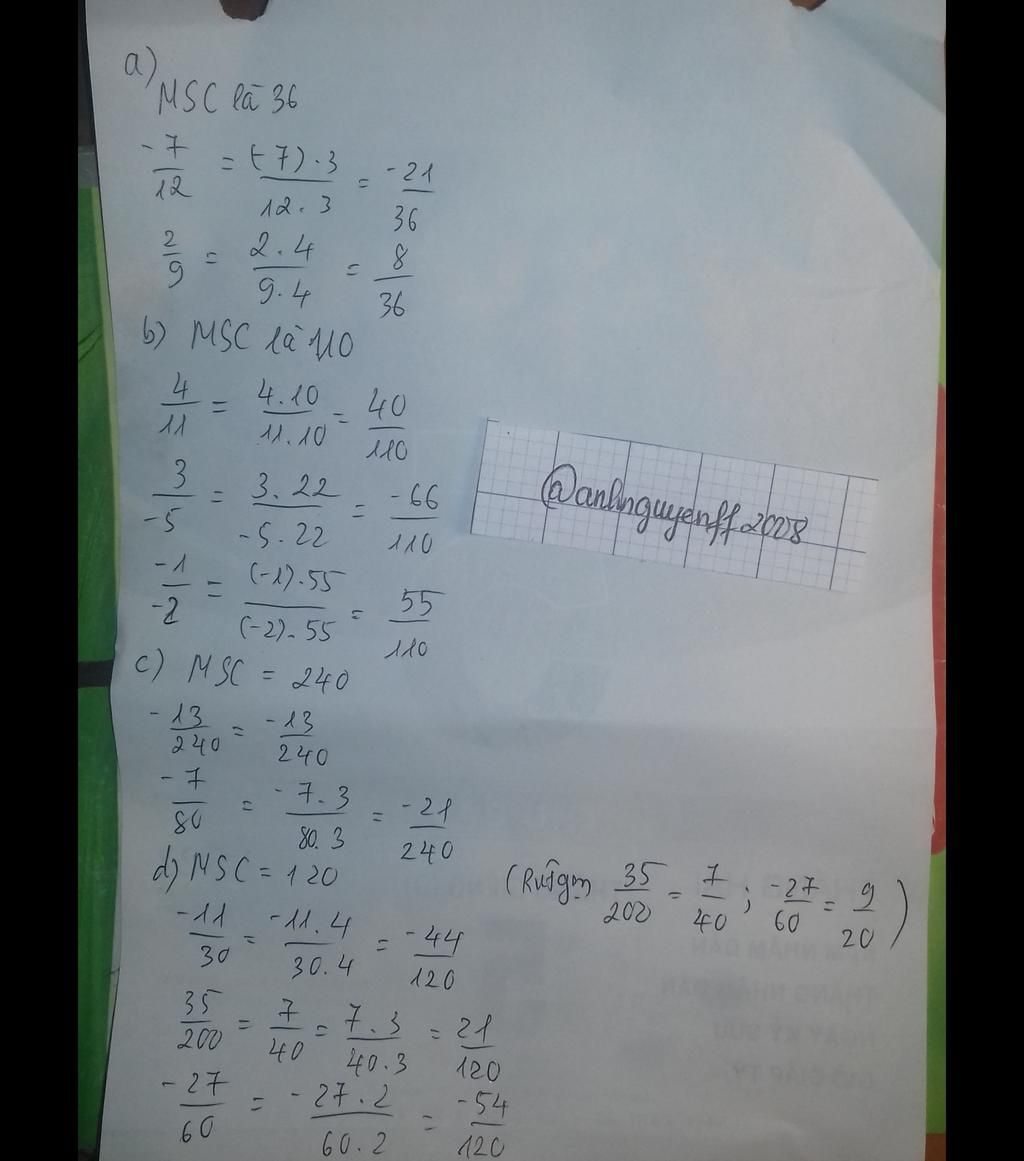 a)
MSC là 36
-7/12 = (-7).3/12.3 = -21/36
2/9 = 2.4/9.4 = 8/36
b) MSC là 110
4/11 = 4.10/11.10 = 40/110
3/-5 = 3.22/-5.22 = -66/110
-1/-2 = (-1).55/(-2).55 = 55/110
@anhnguyenff2008
c) MSC = 240
-13/240 = -13/240
-7/80 = -7.3/80.3 = -21/240
d) MSC = 120
(Rút gọn 35/200 = 7/40; -27/60 = 9/20)
-11/30 = -11.4/30.4 = -44/120
35/200 = 7/40 = 7.3/40.3 = 21/120
-27/60 = -27.2/60.2 = -54/120